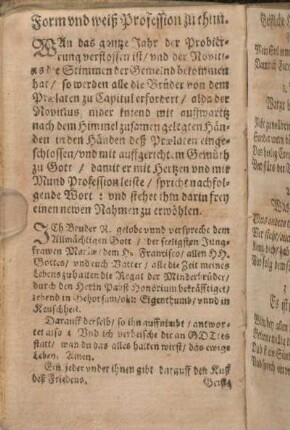 Form vnd weiß Profession zu thun.
WAn das gantze Jahr der Probie-
rung verflossen ist / vnd der Novitius
die Stimmen der Gemeind bekommen
hat / so werden alle die Brüder von dem
Prælaten zu Capitul erfordert / alda der
Novitius nider kniend mit auffwartz
nach dem Himmel zusamen gelegten Hän-
den in den Händen deß Prælaten einge-
schlossen / vnd mit auffgerichtem Gemüth
zu Gott / damit er mit Hertzen vnd mit
Mund Profession leiste / spricht nachfol-
gende Wort : vnd stehet ihm darin frey
einen newen Nahmen zu erwöhlen.
ICh Bruder N. gelobe vnd versprech dem
Allmächtigen Gott / der seeligsten Jung-
frawen Mariæ / dem H. Francisco / allen HH.
Gottes / vnd euch Vatter / alle die Zeit meines
Lebens zuhalten die Regul der Minderbrüder /
durch den Herrn Papst Honorium bekräfftiget /
lebend in Gehorsam / ohn Eigenthumb / vnnd in
Keuschheit.
Darauff derselb / so ihn auffnimbt / antwor-
tet also : Vnd ich verheische dir an GOttes
statt / wan du das alles halten wirst / das ewige
Leben. Amen.
Ein jeder vnder ihnen gibt darauff den Kuß
deß Friedens.